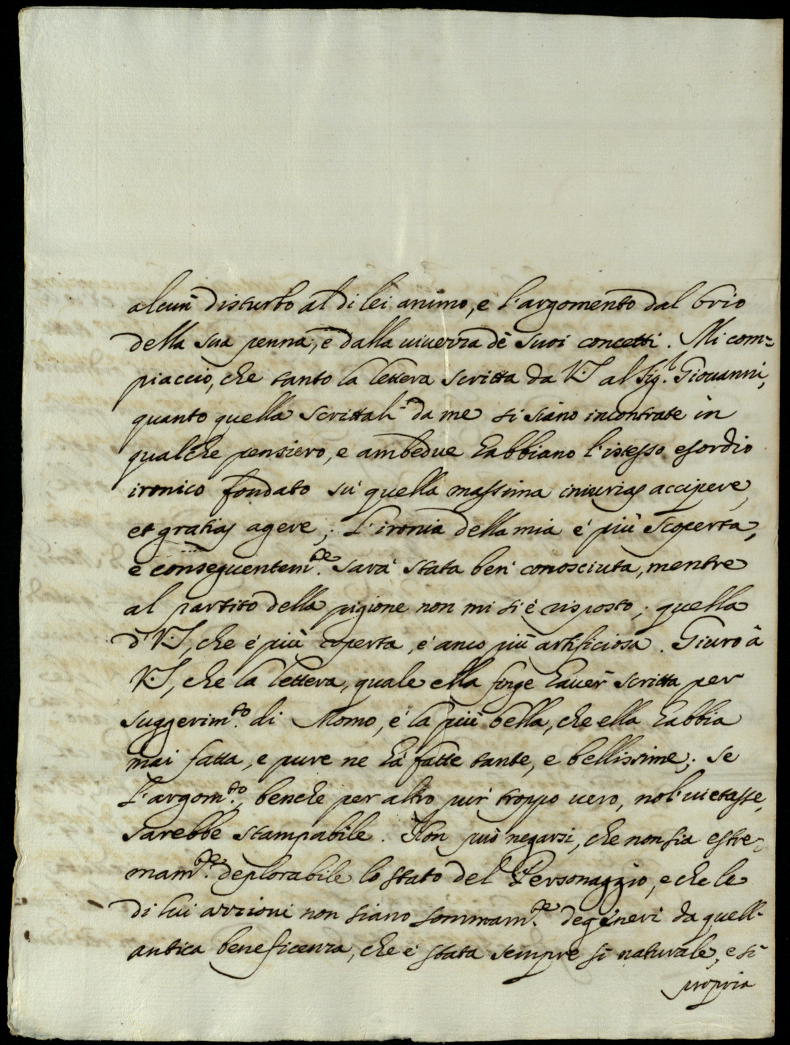 alcun disturbo al di lei animo, e l'argomento dal brio
della sua penna, e dalla viuezza de suoi concetti. Mi com=
piaccio, che tanto la lettera scritta da V.S. al Sig.r Giouanni,
quanto quella scrittali da me si siano incontrate in
qualche pensiero, e ambedue habbiano l'istesso esordio
ironico fondato sù quella massima iniurias accipere,
et gratias agere; l'ironia della mia è più scoperta,
e conseguentem.te sarà stata ben conosciuta, mentre
al partito della pigione non mi si è risposto; quella
d'V.S., che è più coperta, è anco più artificiosa. Giuro à
V.S., che la lettera, quale ella finge hauer scritta per
suggerim.to di Momo, è la più bella, che ella habbia
mai fatta, e pure ne hà fatte tante, e bellissime; se
l'argom.to, benche per altro pur troppo uero, nol uietasse,
sarebbe stampabile. Non può negarsi, che non sia estre=
mam.te deplorabile lo stato del Personaggio, e che le
di lui azzioni non siano sommam.te degeneri da quell'
antica beneficenza, che è stata sempre sì naturale, e sì
propria